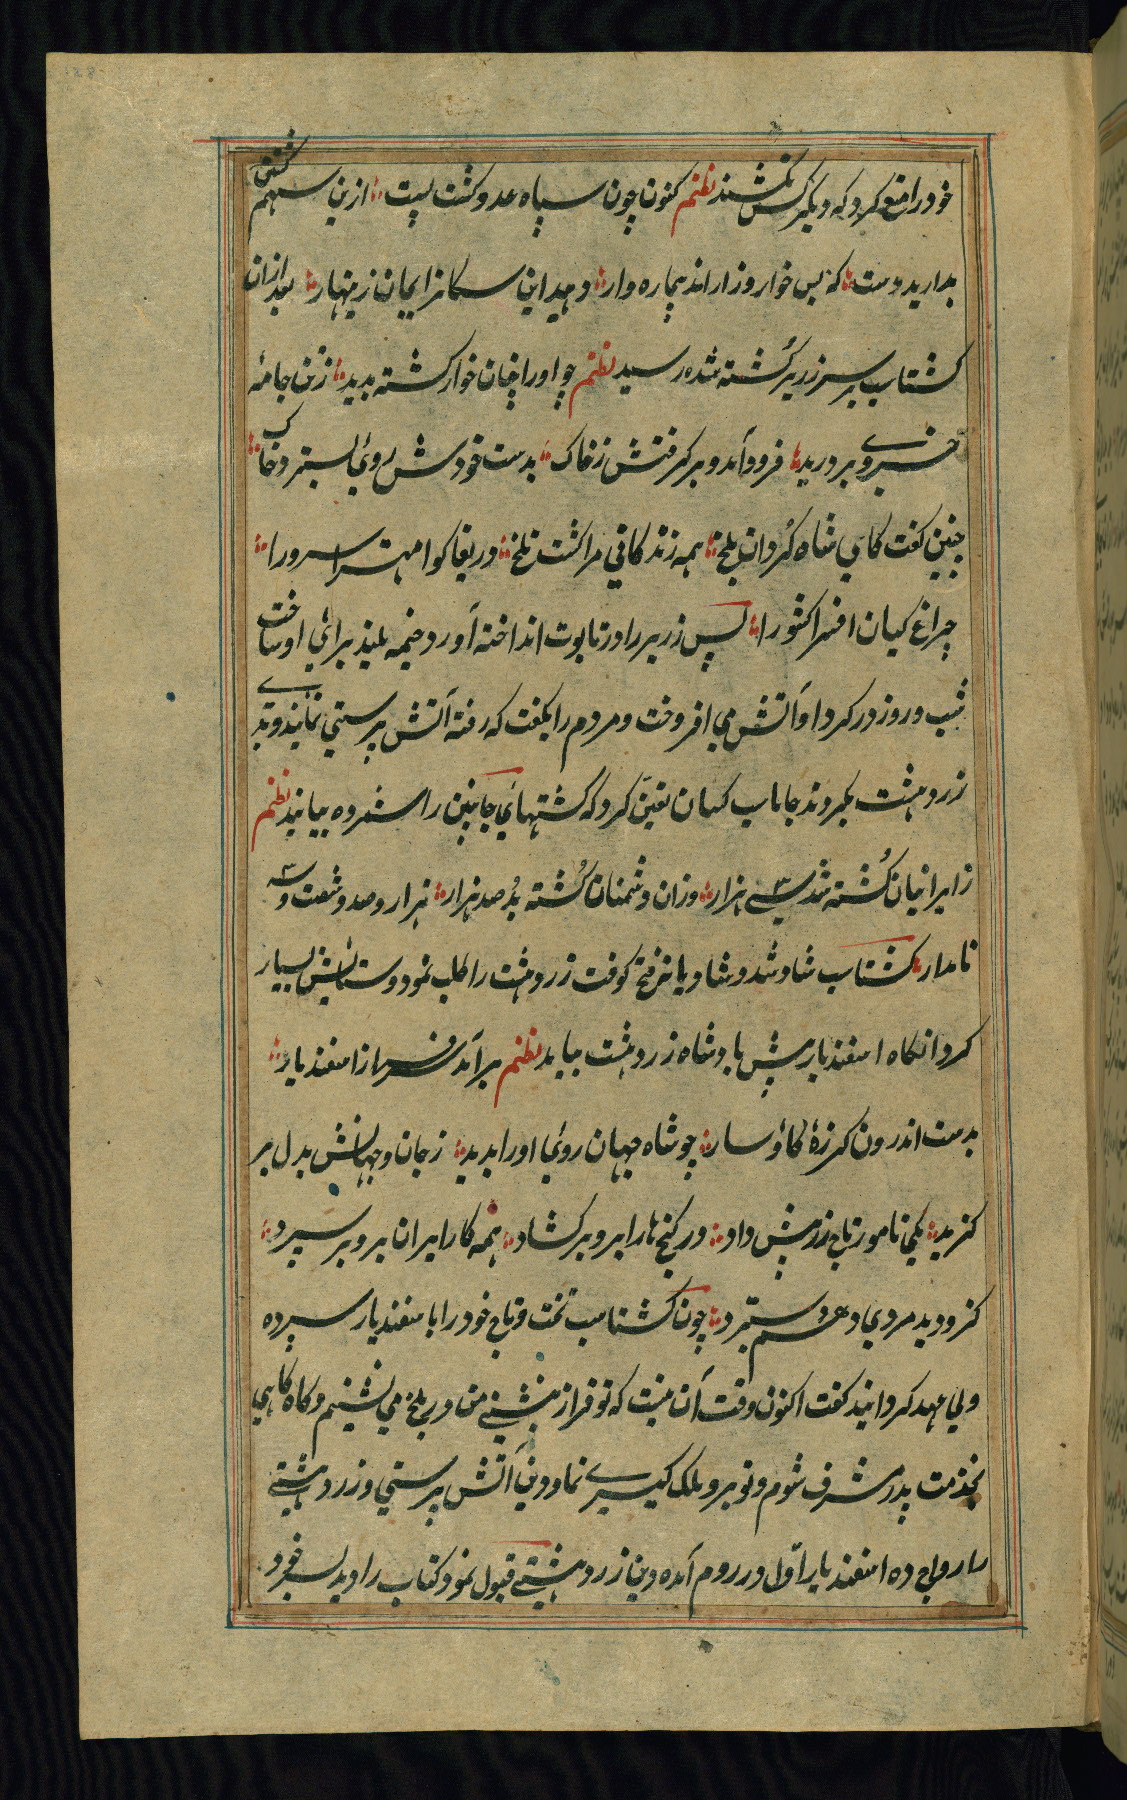 خود را منع کرد که دیگر کس نکشند نظم کنون چون سپاه عدو کشت پست ؛ ازین سهم کشتن
بدارید دست ؛ که بس خوار و زار اند بیچاره وار ؛ دهید این سکانرا بجان زینهار ؛ بعد ازان
کشتاسپ بر سر زریر کشته شده رسید نظم چو او را چنان خوار کشته بدید ؛ زتن جامهٔ
خسروی بر درید ؛ فرود آمد و بر کرفتش زخاک ؛ بدست خودش روی بسترد خاک ؛
چنین کفت کای شاه کردان بلخ ؛ همه زندکانی مرا کشت تلخ ؛ دریغا کوا مهترا سرورا ؛
چراغ کیان افسرا کشورا ؛ پس زریر را در تابوت انداخته آورد خیمه بلند برای او ساخت
شب و روز در کرد او آتش می افروخت و مردم را بکفت که رفته آتش پرستی نمایند و بدی
زردهشت بکردند جاماسپ کسان تعین کرد که کشتهای جانبین را شمرده بیایند نظم
زایرانیان کشته شد سی هزار ؛ وزان دشمنان کشته بد صد هزار ؛ هزار و صد و شصت و سه
نامدار ؛ کشتاسپ شاد شد و شادیانهٔ فتح کوفت زردهشت را طلب نمود و ستایش بسیار
کرد انکاه اسفندیار پیش پادشاه زردهشت بیامد نظم بر آمد سرافراز اسفندیار ؛
بدست اندرون کرزهٔ کاؤسار ؛ چو شاه جهان روی او را بدید ؛ زجان و جهانش بدل بر
کزید ؛ یکی نامور تاج زرینش داد ؛ در کنجها را برو بر کشاد ؛ همه کار ایران برو بر سپرد ؛
کزو دید مردی و هم دستبرد ؛ چون کشتاسب تخت و تاج خود را باسفندیار سپرده
ولی عهد کردانید کفت اکنون وقت آن نیست که تو فراز بنشینی من در بلخ می نشینم و کاه کاهی
بخدمت پدر مشرف شوم و تو برو ملک کیری نما و دین آتش پرستی و زردهشتی
را رواج ده اسفندیار اول در روم آمده دین زردهشتی قبول نمود کتاب را وید بسر خود